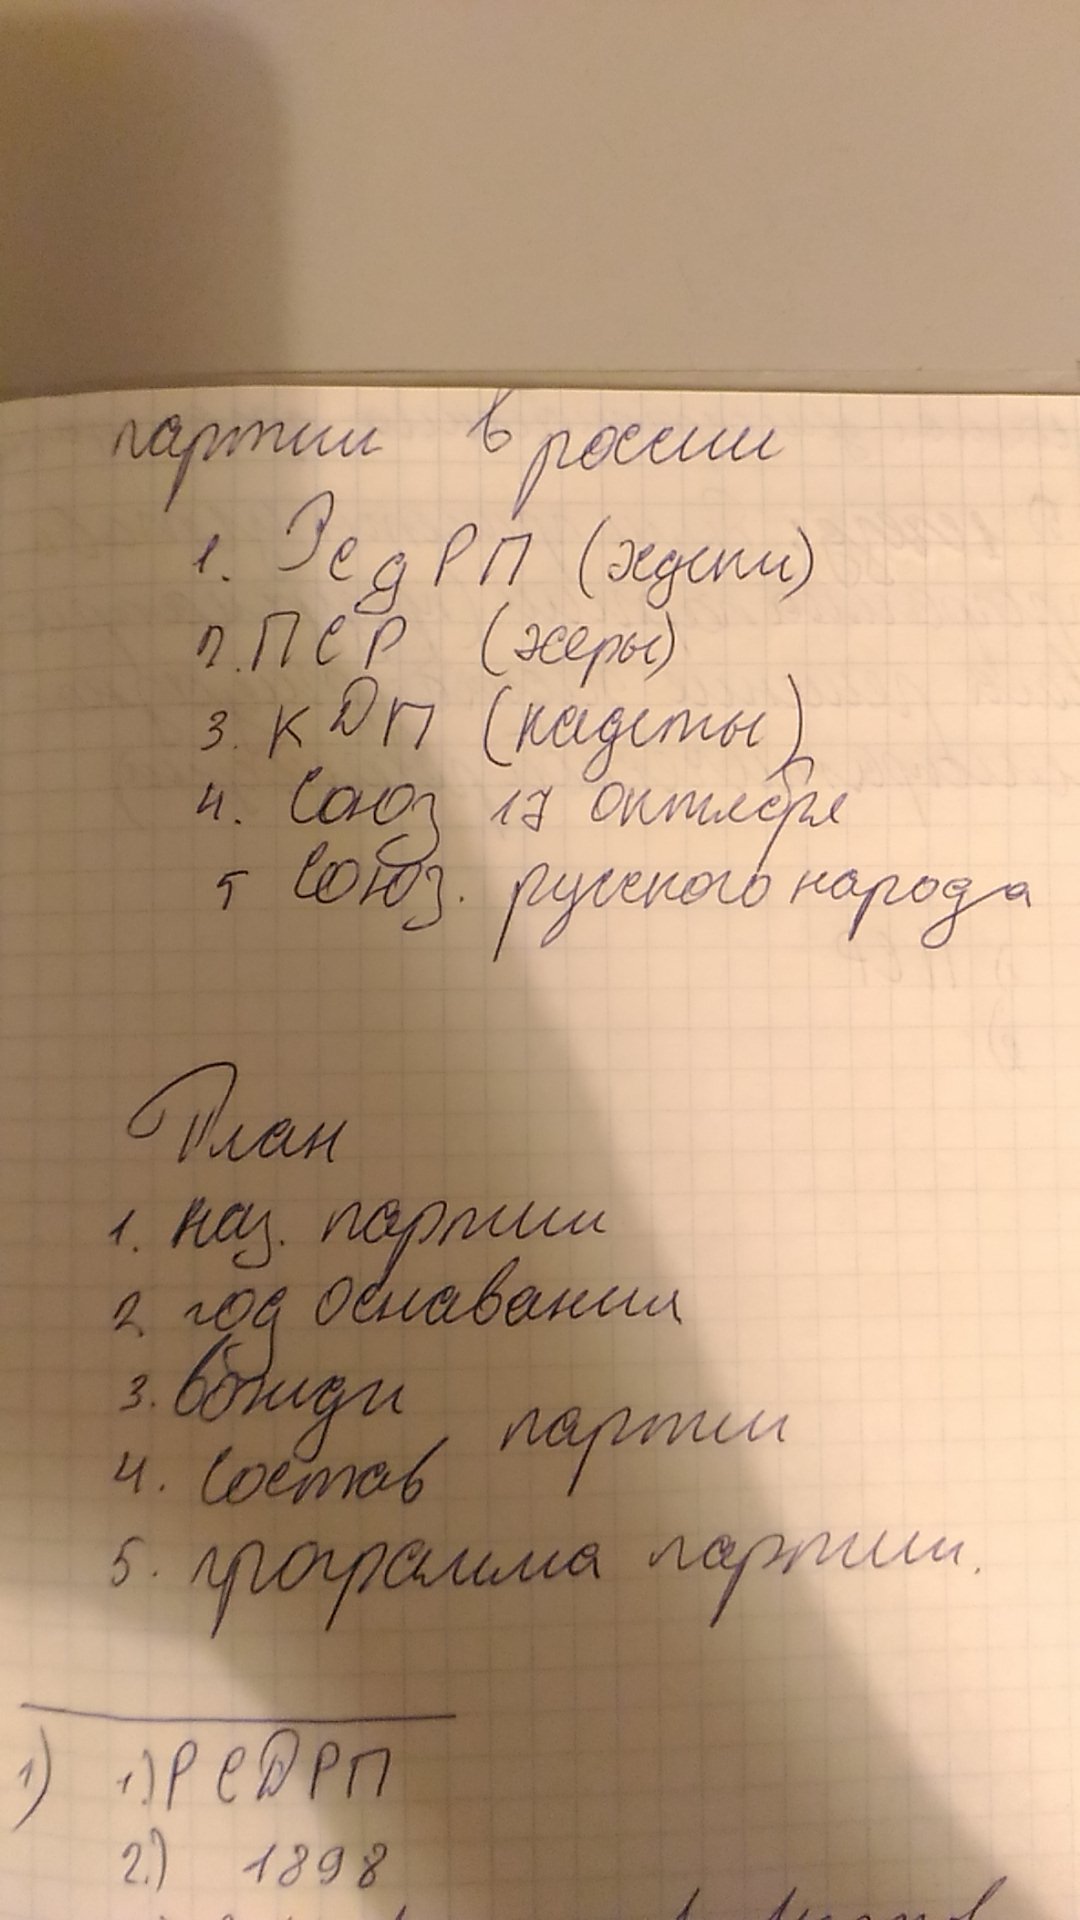 партии в россии
1. РСДРП (эсдеки)
2. ПСР (эсеры)
3. КДП (кадеты)
4. Союз 17 октября
5 Союз. русского народа
План
1. наз. партии
2. год оснавания
3. вожди
партии
4. состав
5. программа партии.
1) 1.) РСДРП
2.) 1898